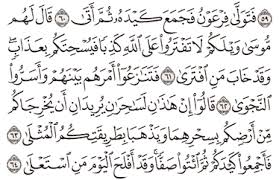 ٥٩ فَتَوَلَّىٰ فِرْعَوْنُ فَجَمَعَ كَيْدَهُۥ ثُمَّ أَتَىٰ ٦٠ قَالَ لَهُم
مُّوسَىٰ وَيْلَكُمْ لَا تَفْتَرُوا۟ عَلَى ٱللَّهِ كَذِبًا فَيُسْحِتَكُم بِعَذَابٍ ۖ
وَقَدْ خَابَ مَنِ ٱفْتَرَىٰ ٦١ فَتَنَٰزَعُوٓا۟ أَمْرَهُم بَيْنَهُمْ وَأَسَرُّوا۟
ٱلنَّجْوَىٰ ٦٢ قَالُوٓا۟ إِنْ هَٰذَٰنِ لَسَٰحِرَٰنِ يُرِيدَانِ أَن يُخْرِجَاكُم
مِّنْ أَرْضِكُم بِسِحْرِهِمَا وَيَذْهَبَا بِطَرِيقَتِكُمُ ٱلْمُثْلَىٰ
٦٣ فَأَجْمِعُوا۟ كَيْدَكُمْ ثُمَّ ٱئْتُوا۟ صَفًّا ۚ وَقَدْ أَفْلَحَ ٱلْيَوْمَ مَنِ ٱسْتَعْلَىٰ ٦٤